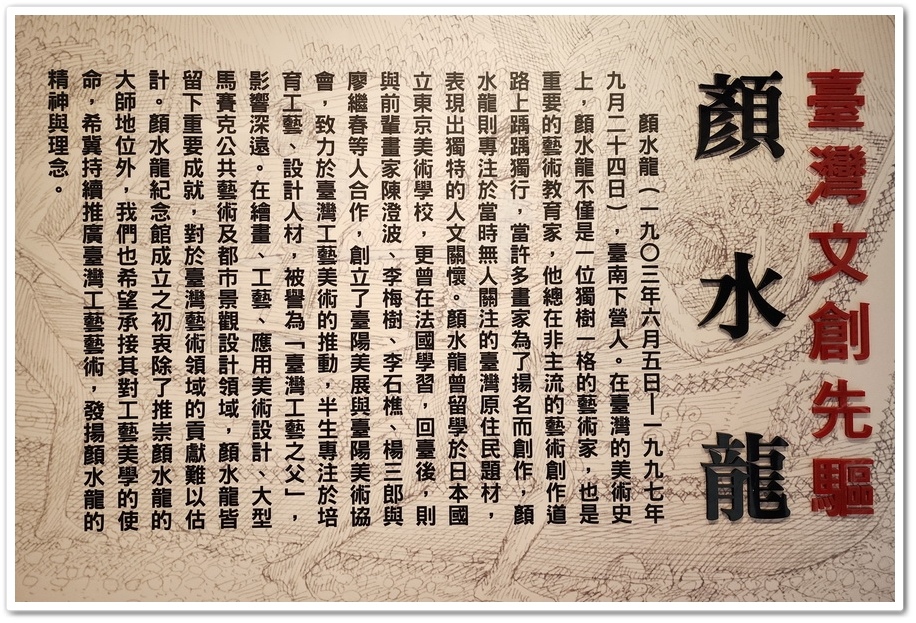 臺灣文創先驅
顏水龍
顏水龍（一九〇三年六月五日—一九九七年
九月二十四日），臺南下營人。在臺灣的美術史
上，顏水龍不僅是一位獨樹一格的藝術家，也是
重要的藝術教育家，他總在非主流的藝術創作道
路上踽踽獨行，當許多畫家為了揚名而創作，顏
水龍則專注於當時無人關注的臺灣原住民題材，
表現出獨特的人文關懷。顏水龍曾留學於日本國
立東京美術學校，更曾在法國學習，回臺後，則
與前輩畫家陳澄波、李梅樹、李石樵、楊三郎與
廖繼春等人合作，創立了臺陽美展與臺陽美術協
會，致力於臺灣工藝美術的推動，半生專注於培
育工藝、設計人材，被譽為「臺灣工藝之父」，
影響深遠。在繪畫、工藝、應用美術設計、大型
馬賽克公共藝術及都市景觀設計領域，顏水龍皆
留下重要成就，對於臺灣藝術領域的貢獻難以估
計。顏水龍紀念館成立之初衷除了推崇顏水龍的
大師地位外，我們也希望承接其對工藝美學的使
命，希冀持續推廣臺灣工藝藝術，發揚顏水龍的
精神與理念。